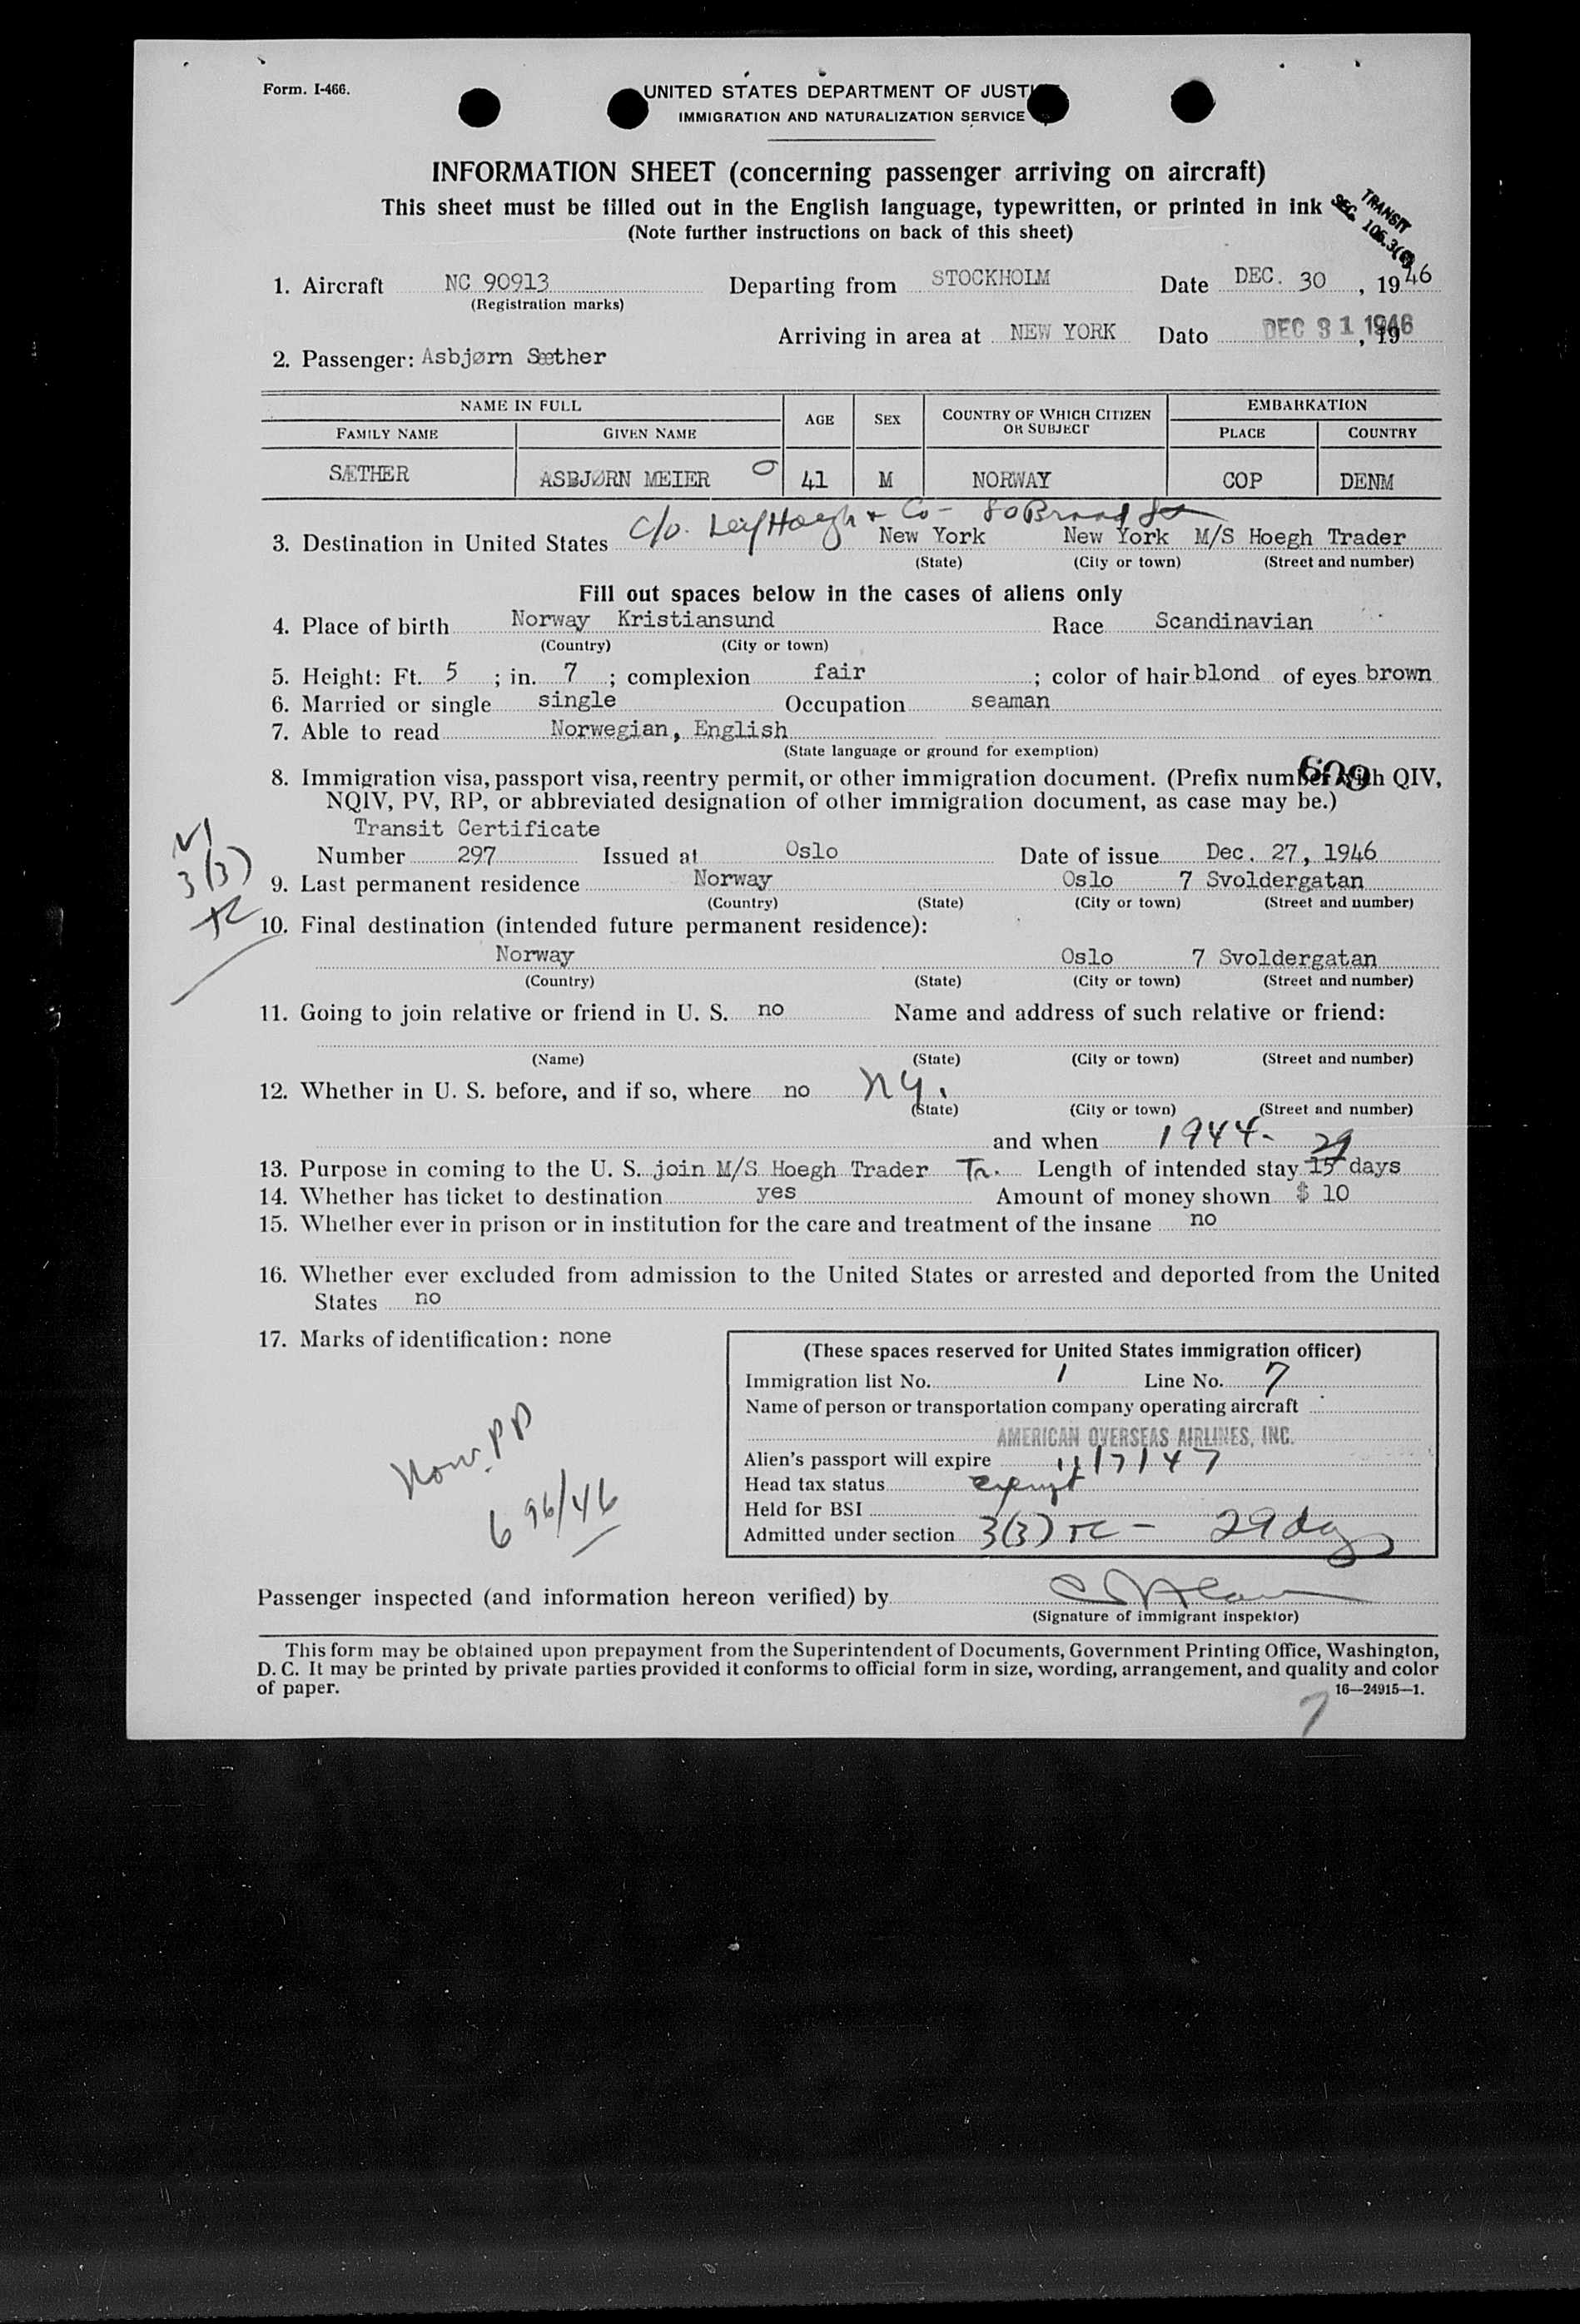 Form. I-466.
UNITED STATES DEPARTMENT OF JUSTI
IMMIGRATION AND NATURALIZATION SERVICE
INFORMATION SHEET (concerning passenger arriving on aircraft)
This sheet must be filled out in the English language, typewritten, or printed in ink
(Note further instructions on back of this sheet)
TRANSIT
SEC. 106.3(6)
1. Aircraft NC 90913 Departing from STOCKHOLM Date DEC. 30, 1946
(Registration marks)
Arriving in area at NEW YORK Dato DEC 31 1946, 19
2. Passenger: Asbjørn Sæther
NAME IN FULL AGE SEX COUNTRY OF WHICH CITIZEN OR SUBJECT EMBARKATION
FAMILY NAME GIVEN NAME PLACE COUNTRY
SÆTHER ASBJØRN MEIER 41 M NORWAY COP DENM
c/o. Leif Hoegh & Co - 80 Broad St
3. Destination in United States New York New York M/S Hoegh Trader
(State) (City or town) (Street and number)
Fill out spaces below in the cases of aliens only
4. Place of birth Norway Kristiansund Race Scandinavian
(Country) (City or town)
5. Height: Ft. 5 ; in. 7 ; complexion fair ; color of hair blond of eyes brown
6. Married or single single Occupation seaman
7. Able to read Norwegian, English
(State language or ground for exemption)
609
8. Immigration visa, passport visa, reentry permit, or other immigration document. (Prefix number with QIV,
NQIV, PV, RP, or abbreviated designation of other immigration document, as case may be.)
Transit Certificate
Number 297 Issued at Oslo Date of issue Dec. 27, 1946
3(3)
9. Last permanent residence Norway Oslo 7 Svoldergatan
(Country) (State) (City or town) (Street and number)
10. Final destination (intended future permanent residence):
Norway Oslo 7 Svoldergatan
(Country) (State) (City or town) (Street and number)
11. Going to join relative or friend in U. S. no Name and address of such relative or friend:
(Name) (State) (City or town) (Street and number)
12. Whether in U. S. before, and if so, where no NY.
(State) (City or town) (Street and number)
and when 1944-
13. Purpose in coming to the U. S. join M/S Hoegh Trader Tr. Length of intended stay 15 29 days
14. Whether has ticket to destination yes Amount of money shown $ 10
15. Whether ever in prison or in institution for the care and treatment of the insane no
16. Whether ever excluded from admission to the United States or arrested and deported from the United
States no
17. Marks of identification: none
(These spaces reserved for United States immigration officer)
Immigration list No. 1 Line No. 7
Name of person or transportation company operating aircraft
AMERICAN OVERSEAS AIRLINES, INC.
Alien's passport will expire 11/7/47
Head tax status exempt
Held for BSI
Admitted under section 3(3) TC - 29 days
Norw. PP
696/46
Passenger inspected (and information hereon verified) by
(Signature of immigrant inspektor)
This form may be obtained upon prepayment from the Superintendent of Documents, Government Printing Office, Washington,
D. C. It may be printed by private parties provided it conforms to official form in size, wording, arrangement, and quality and color
of paper.
16—24915—1.
7